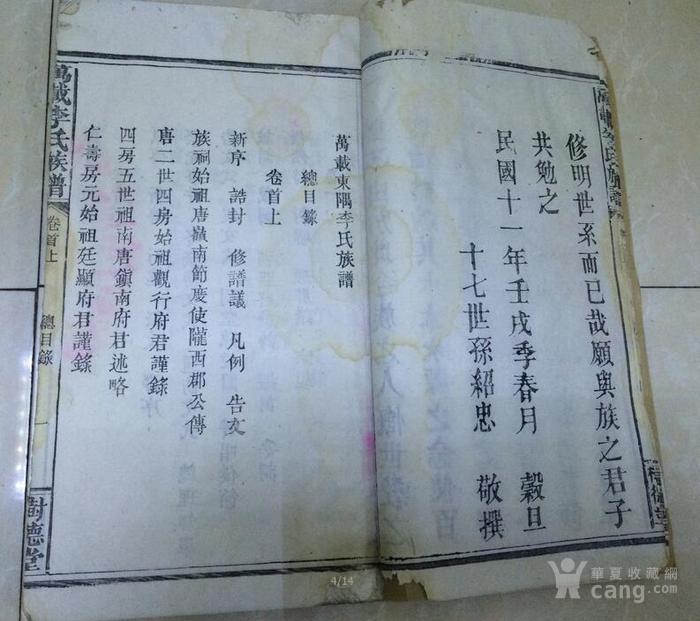 修明世系而已哉願與族之君子
共勉之
民國十一年壬戌季春月 穀旦
十七世孫紹忠 敬撰
萬載東隅李氏族譜
總目錄
卷首上
新序 誥封 修譜議 凡例 告文
族祠始祖唐嶺南節度使隴西郡公傳
唐二世四房始祖觀行府君謹錄
四房五世祖南唐鎮南府君述略
仁壽房元始祖廷顯府君謹錄
萬載李氏族譜
卷首上
總目錄
一
樹德堂
4/14
華夏收藏網
cang.com